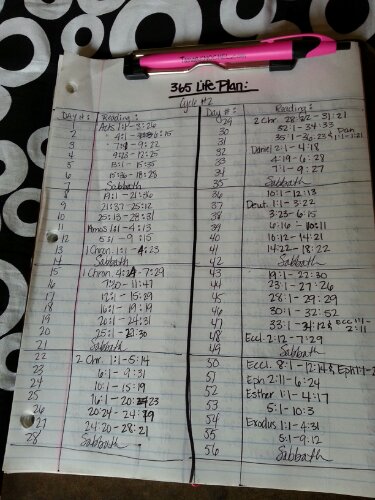 365 Life Plan:
Cycle #2
Day #: Reading:
1 Acts 1:1 - 3:26
2 4:1 - 6:15
3 7:1 - 9:22
4 9:23 - 12:25
5 13:1 - 15:35
6 15:36 - 18:28
7 Sabbath
8 19:1 - 21:36
9 21:37 - 25:12
10 25:13 - 28:31
11 Amos 1:1 - 4:13
12 5:1 - 9:15
13 1 Chron. 1:1 - 4:23
14 Sabbath
15 1 Chron. 4:24 - 7:29
16 7:30 - 11:47
17 12:1 - 15:29
18 16:1 - 19:19
19 20:1 - 24:31
20 25:1 - 29:30
21 Sabbath
22 2 Chr. 1:1 - 5:14
23 6:1 - 9:31
24 10:1 - 15:19
25 16:1 - 20:23
26 20:24 - 24:19
27 24:20 - 28:21
28 Sabbath
Day #: Reading:
29 2 Chr. 28:22 - 31:21
30 32:1 - 34:33
31 35:1 - 36:23 & Dan. 1:1-1:21
32 Daniel 2:1 - 4:18
33 4:19 - 6:28
34 7:1 - 9:27
35 Sabbath
36 10:1 - 12:13
37 Deut. 1:1 - 3:22
38 3:23 - 6:15
39 6:16 - 10:11
40 10:12 - 14:21
41 14:22 - 18:22
42 Sabbath
43 19:1 - 22:30
44 23:1 - 27:26
45 28:1 - 29:29
46 30:1 - 32:52
47 33:1 - 34:12 & Ecc 1:1 - 2:11
48 Eccl. 2:12 - 7:29
49 Sabbath
50 Eccl. 8:1 - 12:14 & Eph 1:1-2
51 Eph 2:11 - 6:24
52 Esther 1:1 - 4:17
53 5:1 - 10:3
54 Exodus 1:1 - 4:31
55 5:1 - 9:12
56 Sabbath